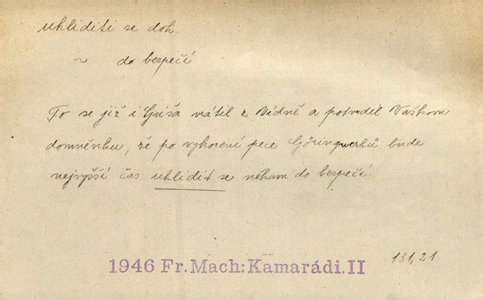 uhliditi se dok.
~ do bezpečí
To se již i Grúša vrátil z Vídně a potvrdil Vaškovu
domněnku, že po vyhození pece Göringwerků bude
nejvyšší čas uhlidit se někam do bezpečí.
131,21
1946 Fr. Mach: Kamarádi. II